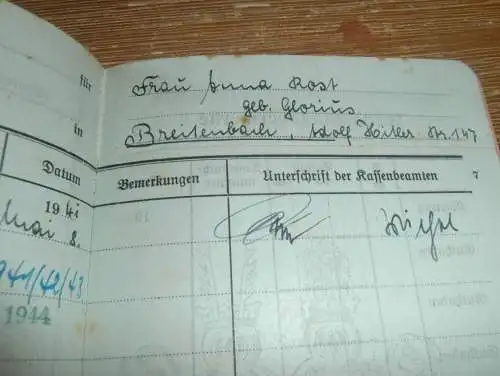 für Frau Anna Rost
geb. Glorius
in Breitenbach, Adolf Hitler Str. 147
Datum Bemerkungen Unterschrift der Kassenbeamten 7
1941
Mai 8.
1941/42/43
1944